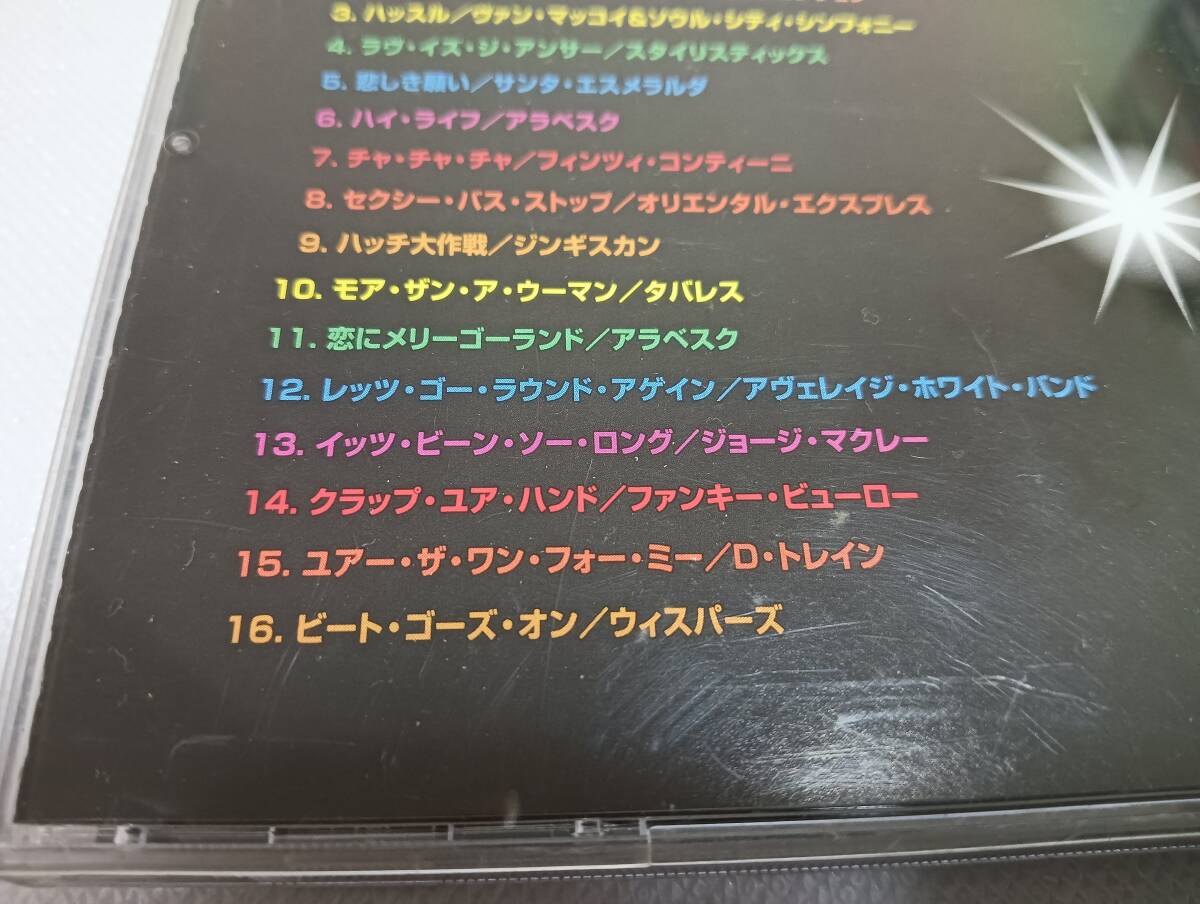 3. ハッスル／ヴァン・マッコイ&ソウル・シティ・シンフォニー
4. ラヴ・イズ・ジ・アンサー／スタイリスティックス
5. 悲しき願い／サンタ・エスメラルダ
6. ハイ・ライフ／アラベスク
7. チャ・チャ・チャ／フィンツィ・コンティーニ
8. セクシー・バス・ストップ／オリエンタル・エクスプレス
9. ハッチ大作戦／ジンギスカン
10. モア・ザン・ア・ウーマン／タバレス
11. 恋にメリーゴーランド／アラベスク
12. レッツ・ゴー・ラウンド・アゲイン／アヴェレイジ・ホワイト・バンド
13. イッツ・ビーン・ソー・ロング／ジョージ・マクレー
14. クラップ・ユア・ハンド／ファンキー・ビューロー
15. ユアー・ザ・ワン・フォー・ミー／D・トレイン
16. ビート・ゴーズ・オン／ウィスパーズ